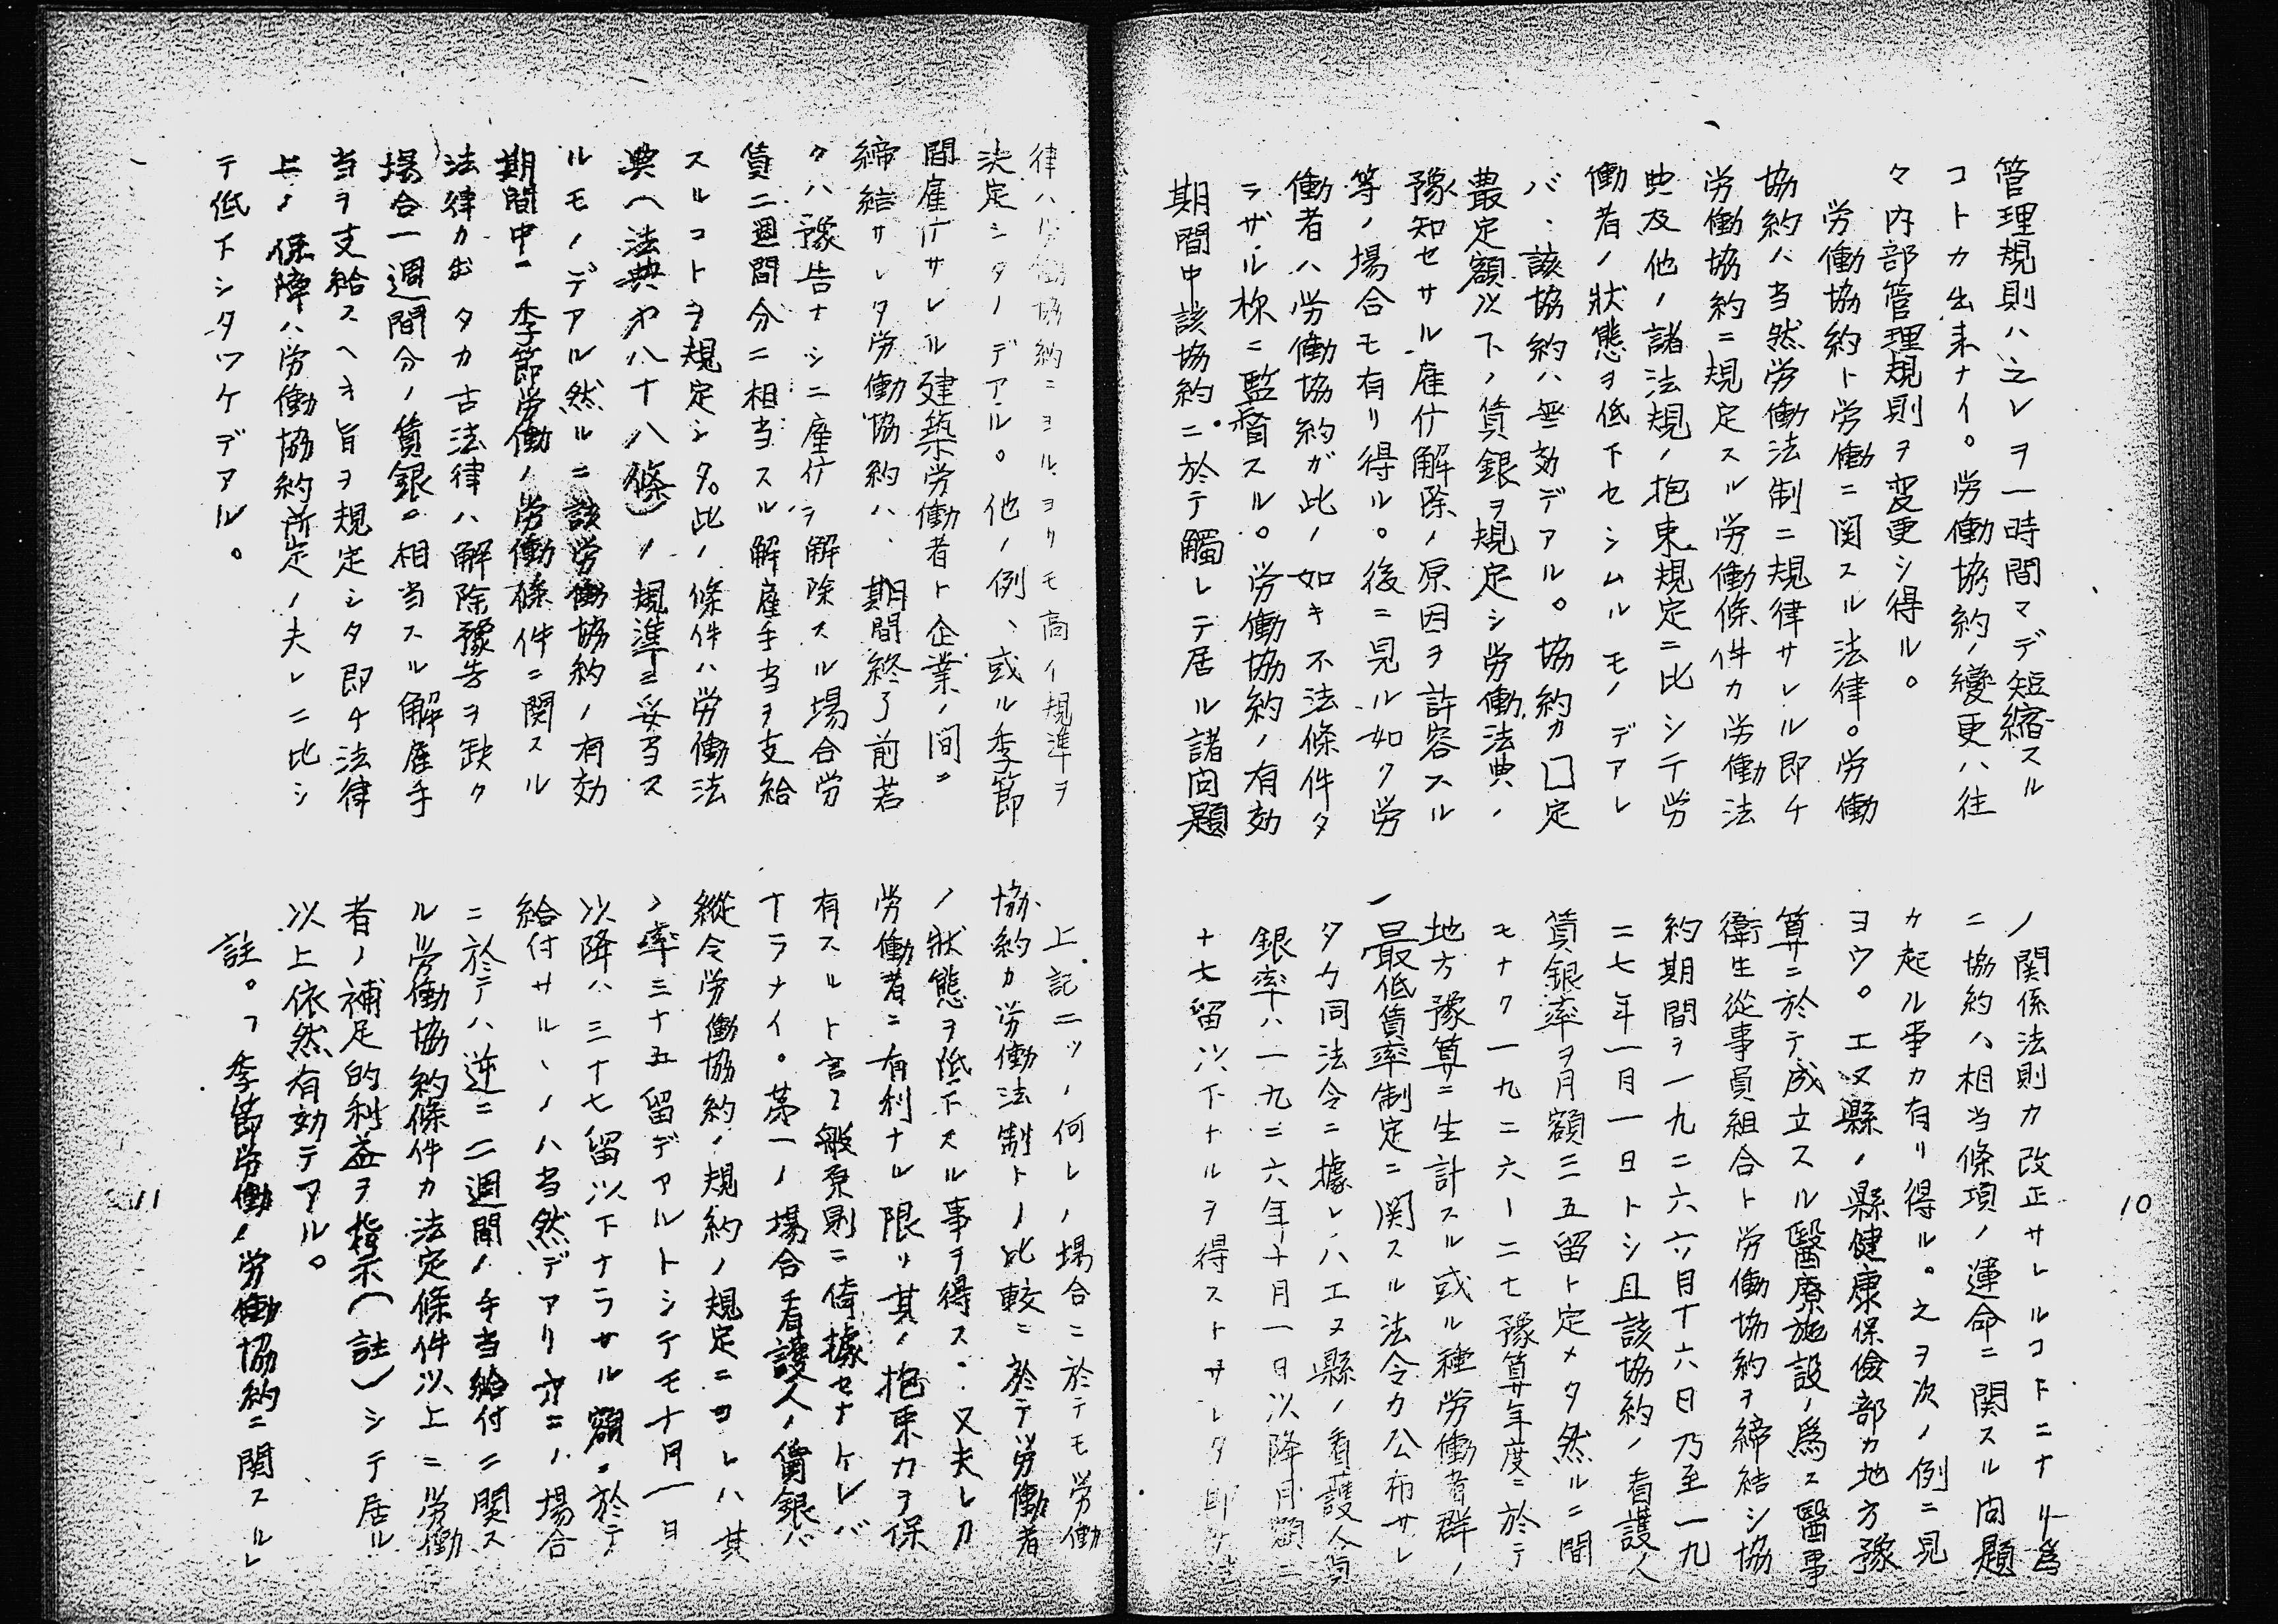 10
管理規則ハ之レヲ一時間マデ短縮スル
コトカ出来ナイ。労働協約ノ變更ハ往
々内部管理規則ヲ変更シ得ル。
労働協約ト労働ニ関スル法律。労働
協約ハ当然労働法制ニ規律サレル即チ
労働協約ニ規定スル労働條件カ労働法
典及他ノ諸法規ノ抱束規定ニ比シテ労
働者ノ狀態ヲ低下セシムルモノデアレ
バ、該協約ハ無効デアル。協約カ□定
最定額以下ノ賃銀ヲ規定シ労働法典ノ
豫知セサル雇傭解除ノ原因ヲ許容スル
等ノ場合モ有リ得ル。後ニ見ル如ク労
働者ハ労働協約ガ此ノ如キ不法條件タ
ラザル様ニ監督スル。労働協約ノ有効
期間中該協約ニ於テ觸レテ居ル諸问題
ノ関係法則カ改正サレルコトニナリ爲
ニ協約ハ相当條項ノ運命ニ関スル问題
ケ起ル事カ有リ得ル。之ヲ次ノ例ニ見
ヨウ。エヌ縣ノ縣健康保儉部カ地方豫
算ニ於テ成立スル醫療施設ノ爲ス醫事
衛生從事員組合ト労働協約ヲ締結シ協
約期間ヲ一九二六六月十六日乃至一九
二七年一月一日トシ且該協約ノ看護人
賃銀率ヲ月額三五留ト定メタ然ルニ間
モナク一九二六ー二七豫算年度ニ於テ
地方豫算ニ生計スル或ル種労働者群ノ
最低賃率制定ニ関スル法令カ公布サレ
タカ同法令ニ據レハエヌ縣ノ看護人賃
銀率ハ一九二六年十月一日以降月額三
十七留以下トルヲ得ストサレタ
律ハ労働協約ニヨルヨリモ高イ規準ヲ
决定シタノデアル。他ノ例、或ル季節
間雇傭サレル建築労働者ト企業ノ间ニ
締結サレタ労働協約ハ、期間終了前若
クハ豫告ナシニ雇傭ヲ解除スル場合労
賃二週間分ニ相当スル解雇手当ヲ支給
スルコトヲ規定シタ。此ノ條件ハ労働法
典（法典第八十八條）ノ規準ニ妥当ス
ルモノデアル然ルニ該労働協約ノ有効
期間中ニ季節労働ノ労働條件ニ関スル
法律カ出タカ古法律ハ解除豫告ヲ缺ク
場合一週間分ノ賃銀ニ相当スル解雇手
当ヲ支給スヘキ旨ヲ規定シタ即チ法律
上ノ保障ハ労働協約所定ノ夫レニ比シ
テ低下シタワケデアル。
上記二ツノ何レノ場合ニ於テモ労働
協約カ労働法制トノ比較ニ於テ労働者
ノ狀態ヲ低下スル事ヲ得ス、又夫レカ
労働者ニ有利ナル限リ其ノ抱束力ヲ保
有スルト言フ般原則ニ倚據セナケレバ
ナラナイ。第一ノ場合看護人ノ賃銀ハ
縱令労働協約ノ規約ノ規定ニヨレハ其
ノ率三十五留デアルトシテモ十月一日
以降ハ三十七留以下ナラサル額ニ於テ
給付サルヽノハ当然デアリ第二ノ場合
ニ於テハ逆ニ二週間ノ手当給付ニ関ス
ル労働協約條件カ法定條件以上ニ労働
者ノ補足的利益ヲ指示（註）シテ居ル
以上依然有効テアル。
註。「季節労働ノ労働協約ニ関スルレ
11